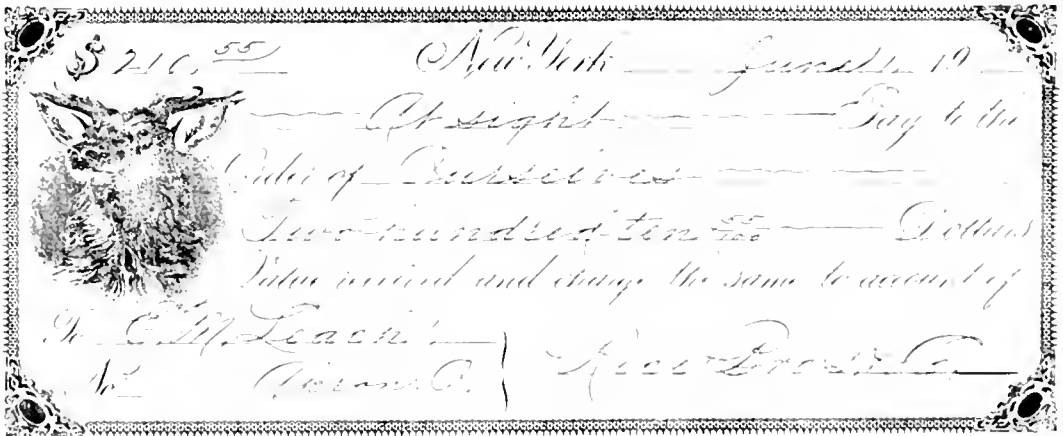 $ 210.55 New York June 1 19
At sight Pay to the
Order of Ourselves
Two hundred ten 55/100 Dollars
Value received and charge the same to account of
To E. M. Leach
No.